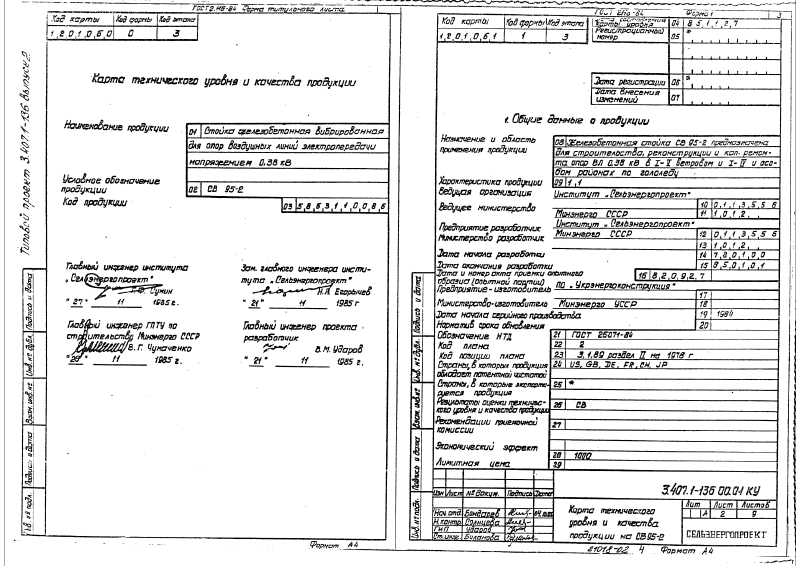 ГОСТ 2.116-84 Форма титульного листа
Код карты Код формы Код этапа
1,2,0,1,0,5,0 0 3
Карта технического уровня и качества продукции
Наименование продукции
01 Стойка железобетонная вибрированная
для опор воздушных линий электропередачи
напряжением 0.38 кВ
Условное обозначение
продукции
02 СВ 95-2
Код продукции
03 5,8,6,3,1,1,0,0,8,6
Главный инженер института
„Сельэнергопроект"
Сумин
"27" 11 1985 г.
Зам. главного инженера инсти-
тута „Сельэнергопроект"
Н.Я. Егорычев
"21" 11 1985 г
Главный инженер ГПТУ по
строительству Минэнерго СССР
В. Г. Чукаченко
11 1985 г.
Главный инженер проекта -
разработчик
В. М. Ударов
"21" 11 1985 г.
Типовой проект 3.407.1-136 выпуск 2
Инв. № дубл. Подпись и дата
Взам. инв. №
Подпись и дата
Инв. № подл.
Формат А4
Форма 1
3
Код карты Код формы Код этапа
1,2,0,1,0,5,1 1 3
04 8,5,1,1,2,7
Регистрационный
номер
05 *
Дата регистрации 06 *
Дата внесения
изменений
07
1. Общие данные о продукции
Назначение и область
применения продукции
08 Железобетонная стойка СВ 95-2 предназначена
для строительства, реконструкции и кап. ремон-
та опор ВЛ 0.38 кВ в I-V ветровом и I-IV и осо-
бом районах по гололеду
Характеристика продукции 09 1,1
Ведущая организация Институт „Сельэнергопроект"
10 0,1,1,3,5,5,6
Ведущее министерство Минэнерго СССР 11 1,0,1,2
Предприятие разработчик Институт „Сельэнергопроект"
Министерство разработчик Минэнерго СССР 12 0,1,1,3,5,5,6
13 1,0,1,2
Дата начала разработки 14 7,8,0,1,0,0
Дата окончания разработки 15 8,5,0,1,0,1
Дата и номер акта приемки опытного
образца (опытной партии)
16 8,2,0,9,2,7
Предприятие - изготовитель ПО „Укрэнергоконструкция"
17
Министерство-изготовитель Минэнерго УССР 18
Дата начала серийного производства 19 1984
Норматив срока обновления 20
Обозначение НТД 21 ГОСТ 26071-84
Код плана 22 2
Код позиции плана 23 3.1.89 раздел II на 1978 г
Страны, в которых продукция
обладает патентной чистотой
24 US, GB, DE, FR, CH, JP
Страны, в которые экспорти-
руется продукция
25 *
Результаты оценки техническо-
го уровня и качества продукции
26 СВ
Рекомендации приемочной
комиссии
27
Экономический эффект 28 1000
Лимитная цена 29
Инв. № подл. Подпись и дата Взам. инв. № Инв. № дубл. Подпись и дата
Изм Лист № докум. Подпись Дата
Нач. отд. Бондарев
Н. контр. Солнцева
ГИП Ударов
Ст. инж. Буланова
3.407.1-136 00.01 КУ
Карта технического
уровня и качества
продукции на СВ 95-2
Лит Лист Листов
А 2 9
СЕЛЬЭНЕРГОПРОЕКТ
21018-02 4 Формат А4